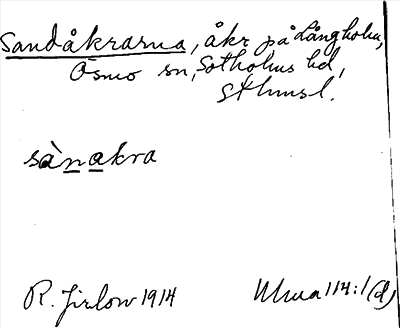 Sandåkrarna, åkr på Långholm,
Ösmo sn, Sotholms hd,
Sthmsl.
sànakra
R. Jirlow 1914 Ulma 114:1 (d)